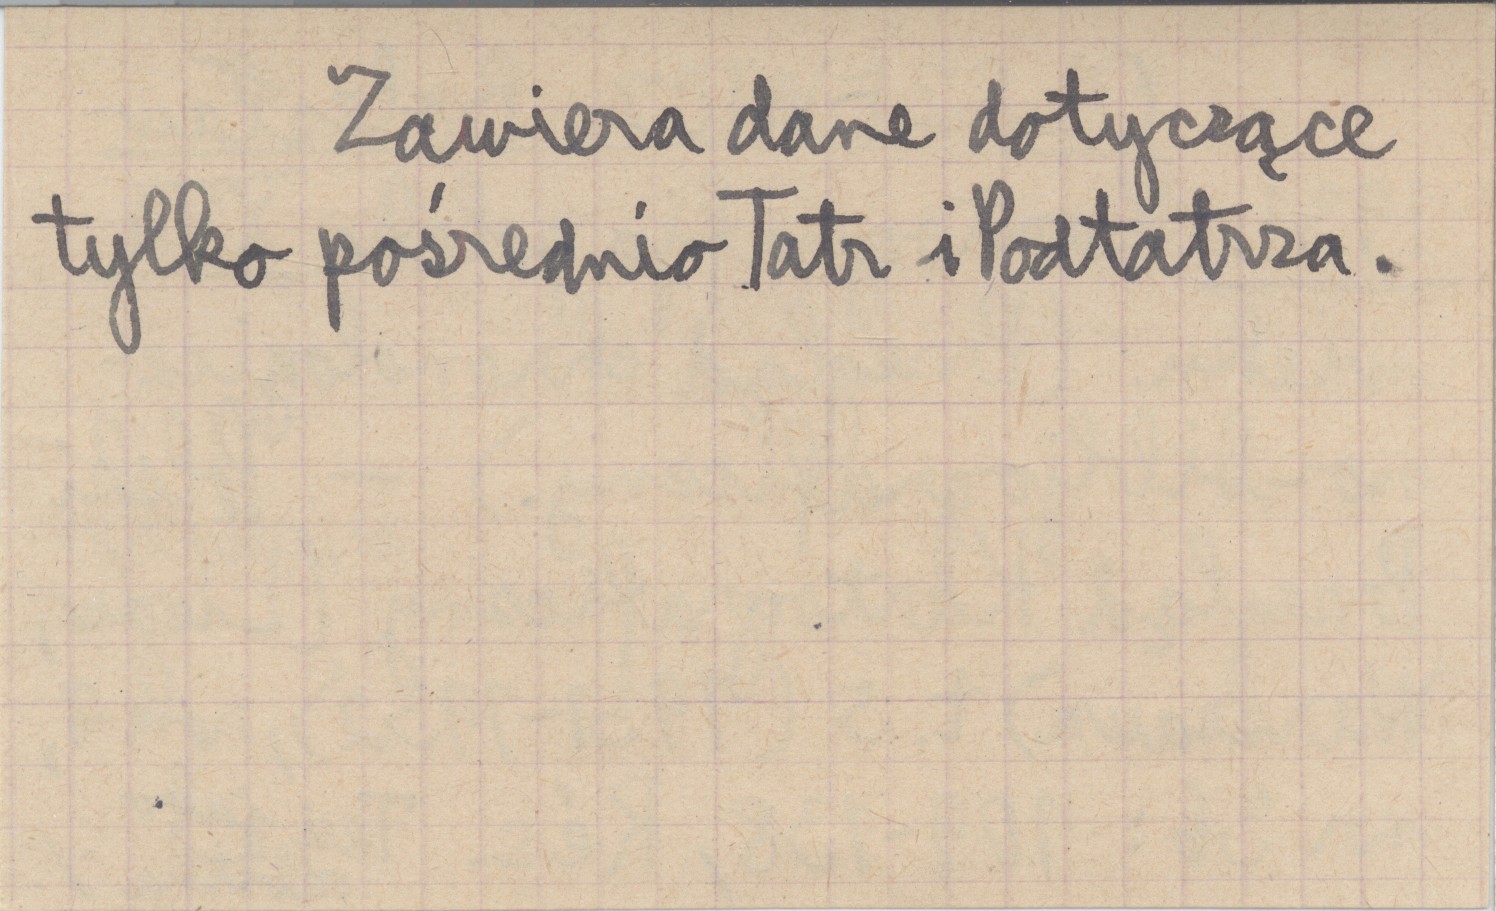 Zawiera dane dotyczące
tylko pośrednio Tatr i Podtatrza.